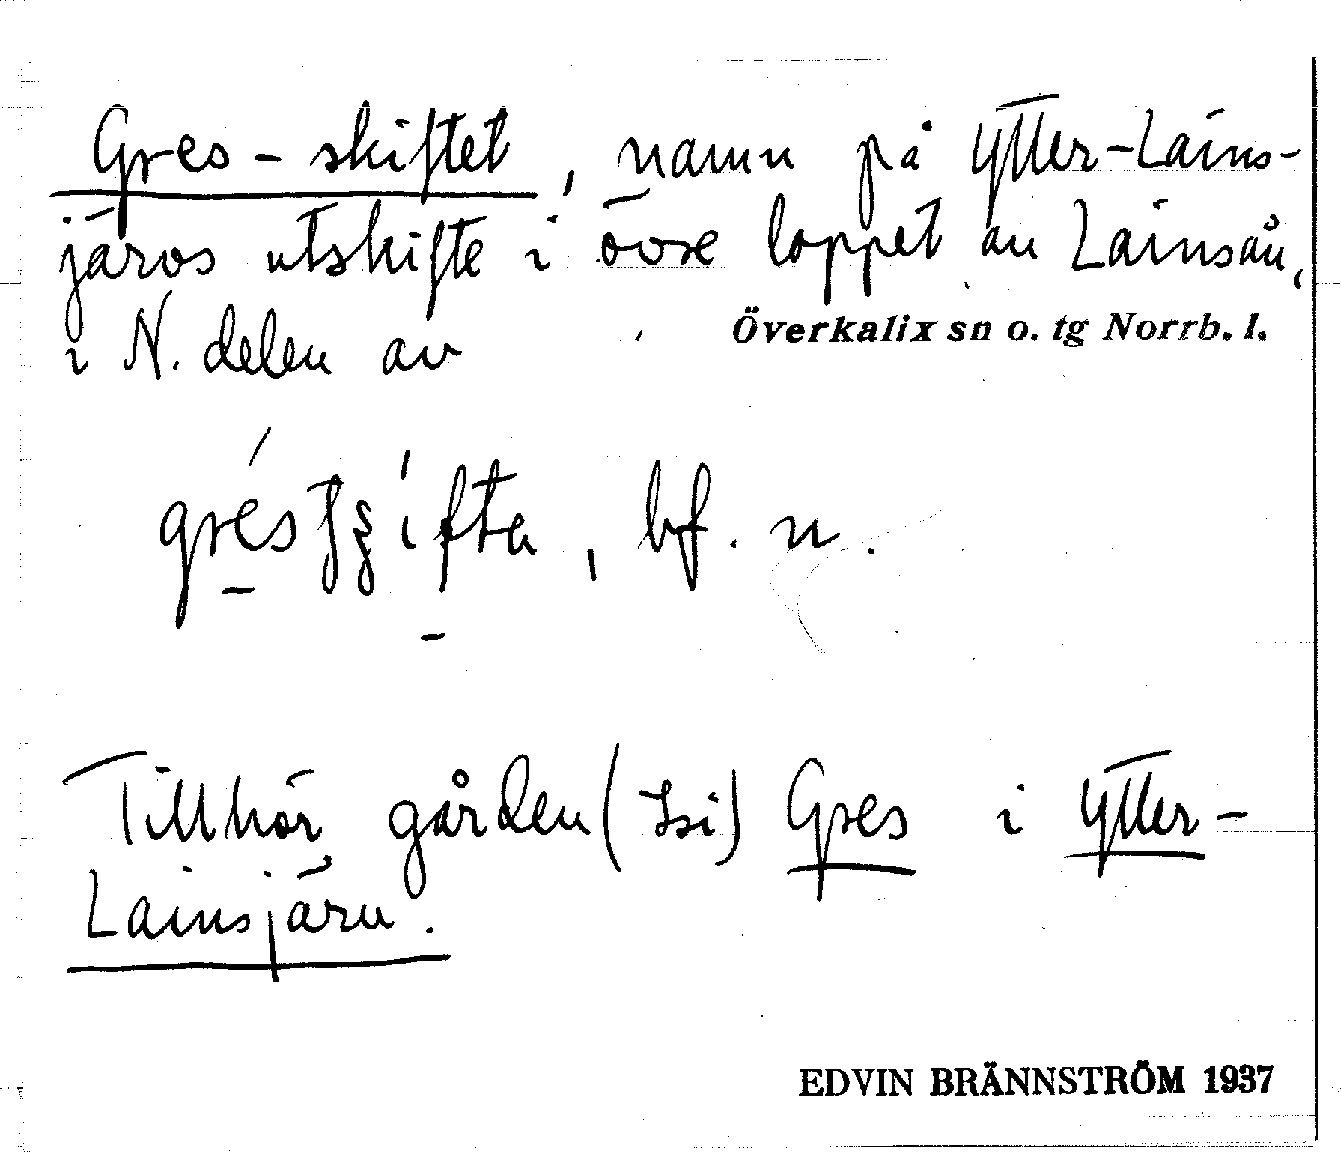 Gres-skiftet, namn på Ytter-Lains-
järvs utskifte i övre loppet av Lainsån,
i N. delen av Överkalix sn o. tg Norrb. l.
, bf. n.
Tillhör gården ( ) Gres i Ytter-
Lainsjärv.
EDVIN BRÄNNSTRÖM 1937